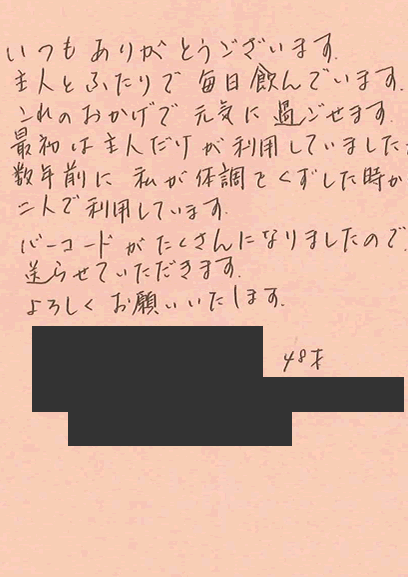 いつもありがとうございます.
主人とふたりで毎日飲んでいます.
これのおかげで元気に過ごせます.
最初は主人だけが利用していました
数年前に私が体調をくずした時か
二人で利用しています.
バーコードがたくさんになりましたので
送らせていただきます.
よろしくお願いいたします.
48才